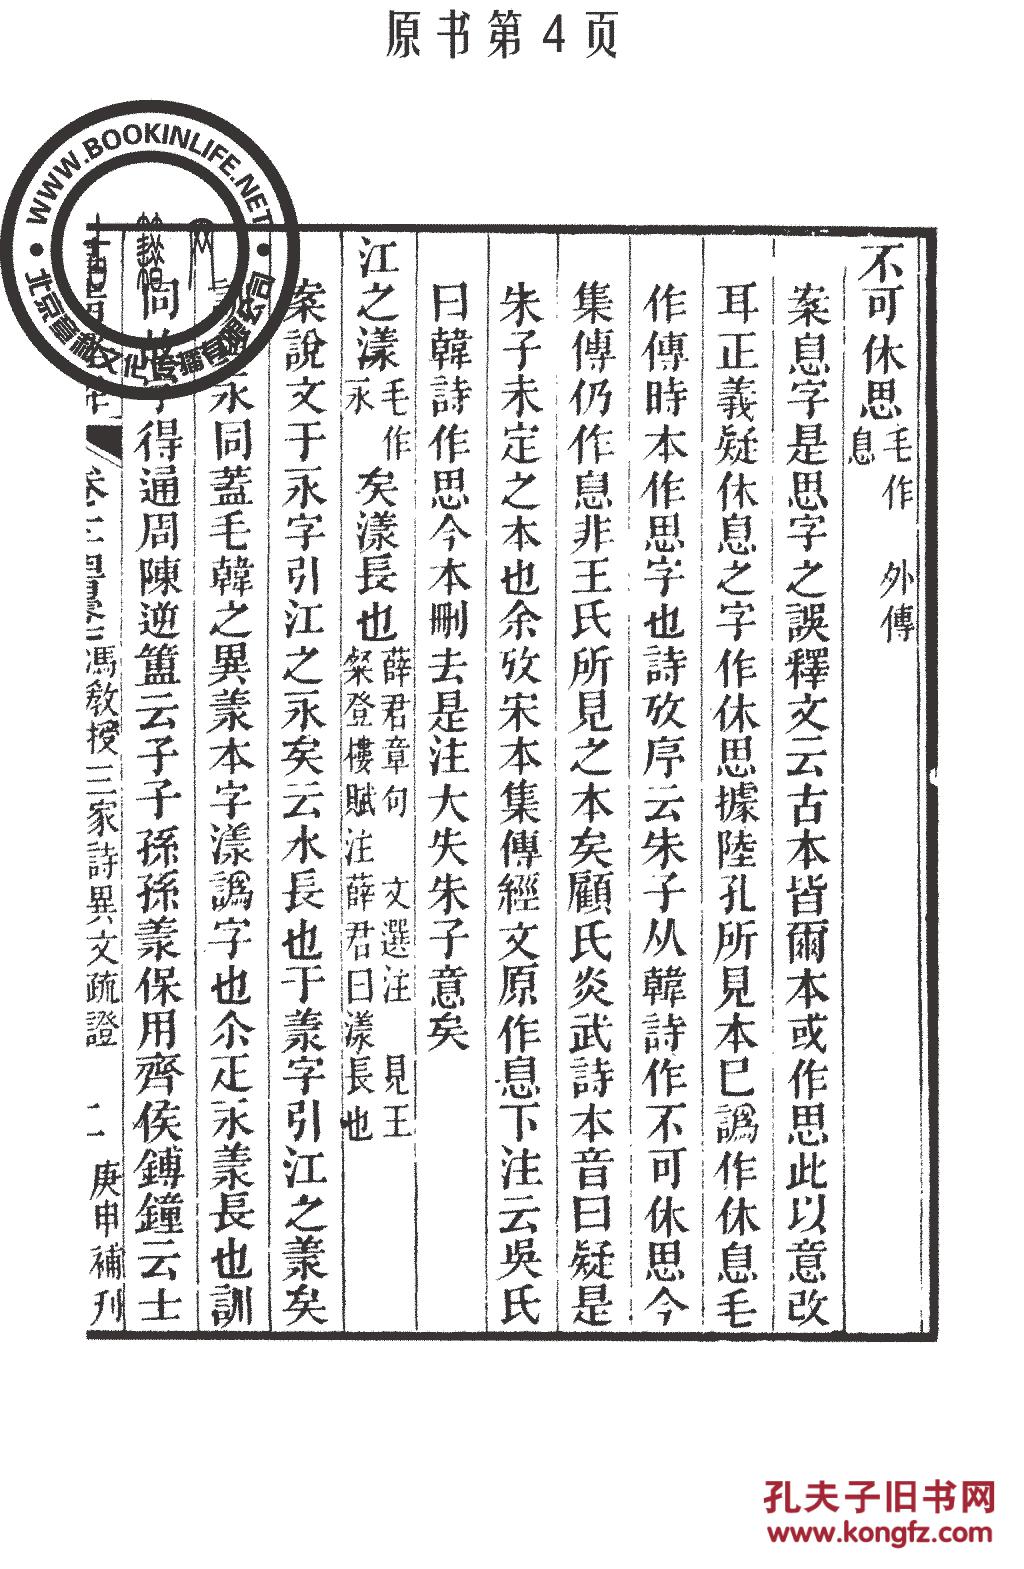 原书第4页
WWW.BOOKINLIFE.NET
不可休思毛作息 外傳
案息字是思字之誤釋文云古本皆爾本或作思此以意改
耳正義疑休息之字作休思據陸孔所見本已譌作休息毛
作傳時本作思字也詩攷序云朱子从韓詩作不可休思今
集傳仍作息非王氏所見之本矣顧氏炎武詩本音曰疑是
朱子未定之本也余攷宋本集傳經文原作息下注云吳氏
曰韓詩作思今本刪去是注大失朱子意矣
江之漾毛作永矣漾長也薛君章句 文選注 見王粲登樓賦注薛君曰漾長也
案說文于永字引江之永矣云水長也于羕字引江之羕矣
永同蓋毛韓之異羕本字漾譌字也尒疋永羕長也訓
同 得通周陳逆簠云子子孫孫羕保用齊侯鎛鐘云士
卷 馮敎授三家詩異文疏證 二 庚申補刋
孔夫子旧书网
www.kongfz.com